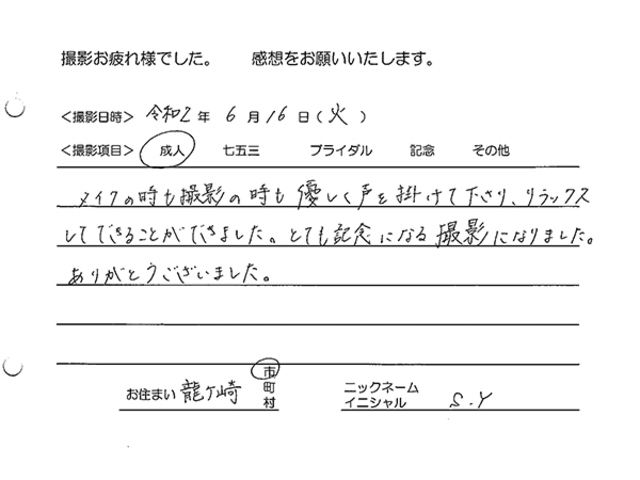 撮影お疲れ様でした。 感想をお願いいたします。
＜撮影日時＞ 令和2年 6月16日（火）
＜撮影項目＞ 成人 七五三 ブライダル 記念 その他
メイクの時も撮影の時も優しく声を掛けて下さり、リラックス
してできることができました。とても記念になる撮影になりました。
ありがとうございました。
お住まい 龍ヶ崎 市 町 村 ニックネーム イニシャル S.Y